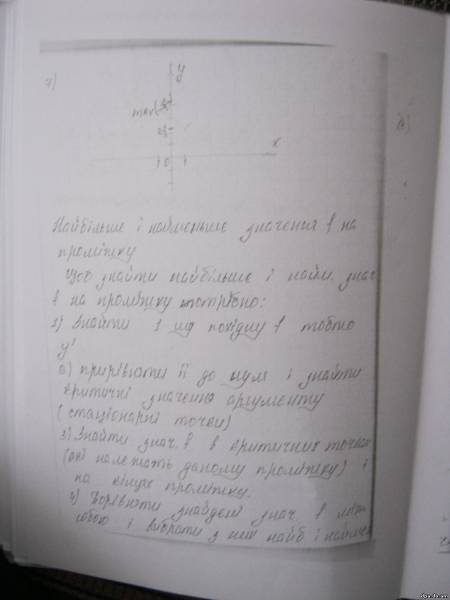 7)
y
max
x
0
Найбільше і найменьше значення f на
проміжку
Щоб знайти найбільше і найм. знач
f на проміжку потрібно:
1) Знайти 1 шу похідну f тобто
y'
2) прирівняти її до нуля і знайти
критичні значення аргументу
(стаціонарні точки)
3) Знайти знач. f в критичних точках
(які належать даному проміжку) і
на кінцях проміжку.
4) Порівняти знайдені знач. f між
собою і вибрати з них найб і найменш